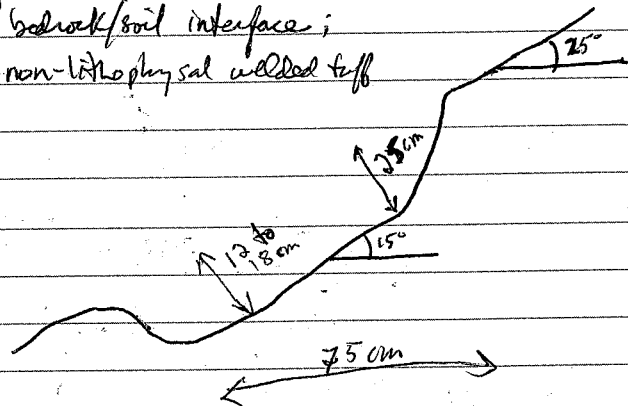 bedrock/soil interface;
non-lithophysal welded tuff
25°
25 cm
15°
12 to
18 cm
75 cm